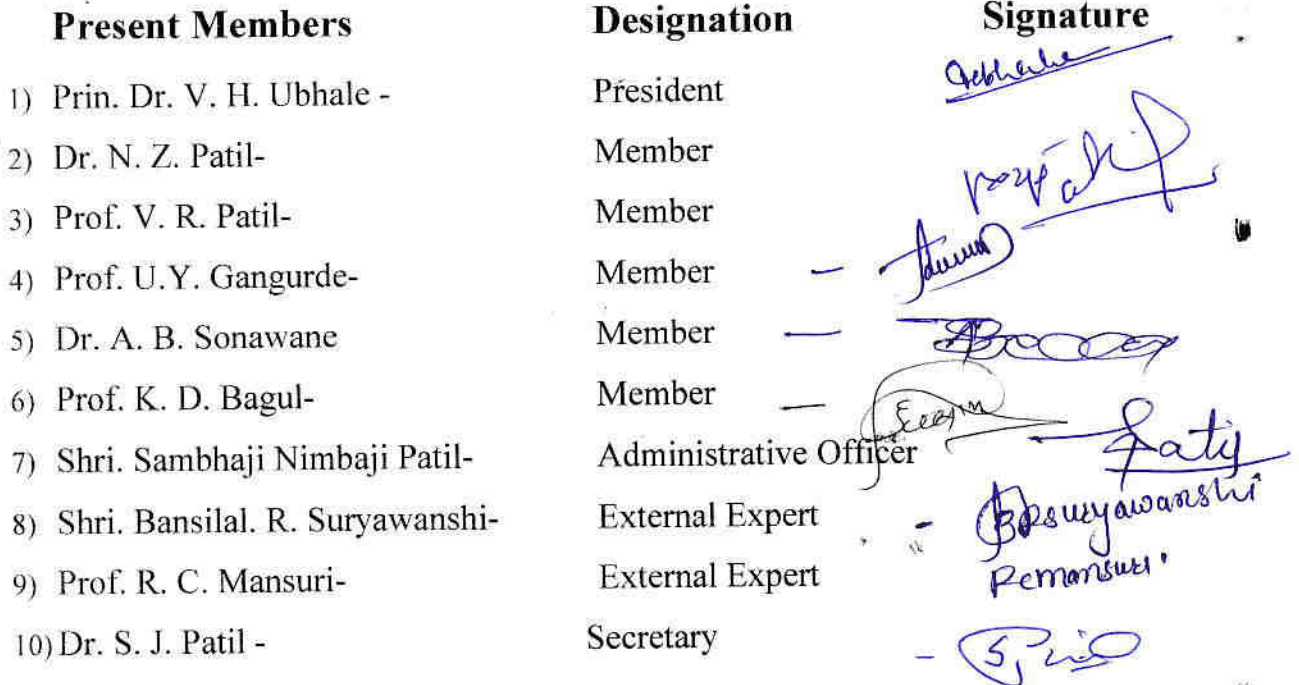 Present Members Designation Signature
1) Prin. Dr. V. H. Ubhale - President
2) Dr. N. Z. Patil- Member
3) Prof. V. R. Patil- Member
4) Prof. U.Y. Gangurde- Member –
5) Dr. A. B. Sonawane Member –
6) Prof. K. D. Bagul- Member –
7) Shri. Sambhaji Nimbaji Patil- Administrative Officer
8) Shri. Bansilal. R. Suryawanshi- External Expert - BRSuryawanshi
9) Prof. R. C. Mansuri- External Expert Rcmansuri
10) Dr. S. J. Patil - Secretary -